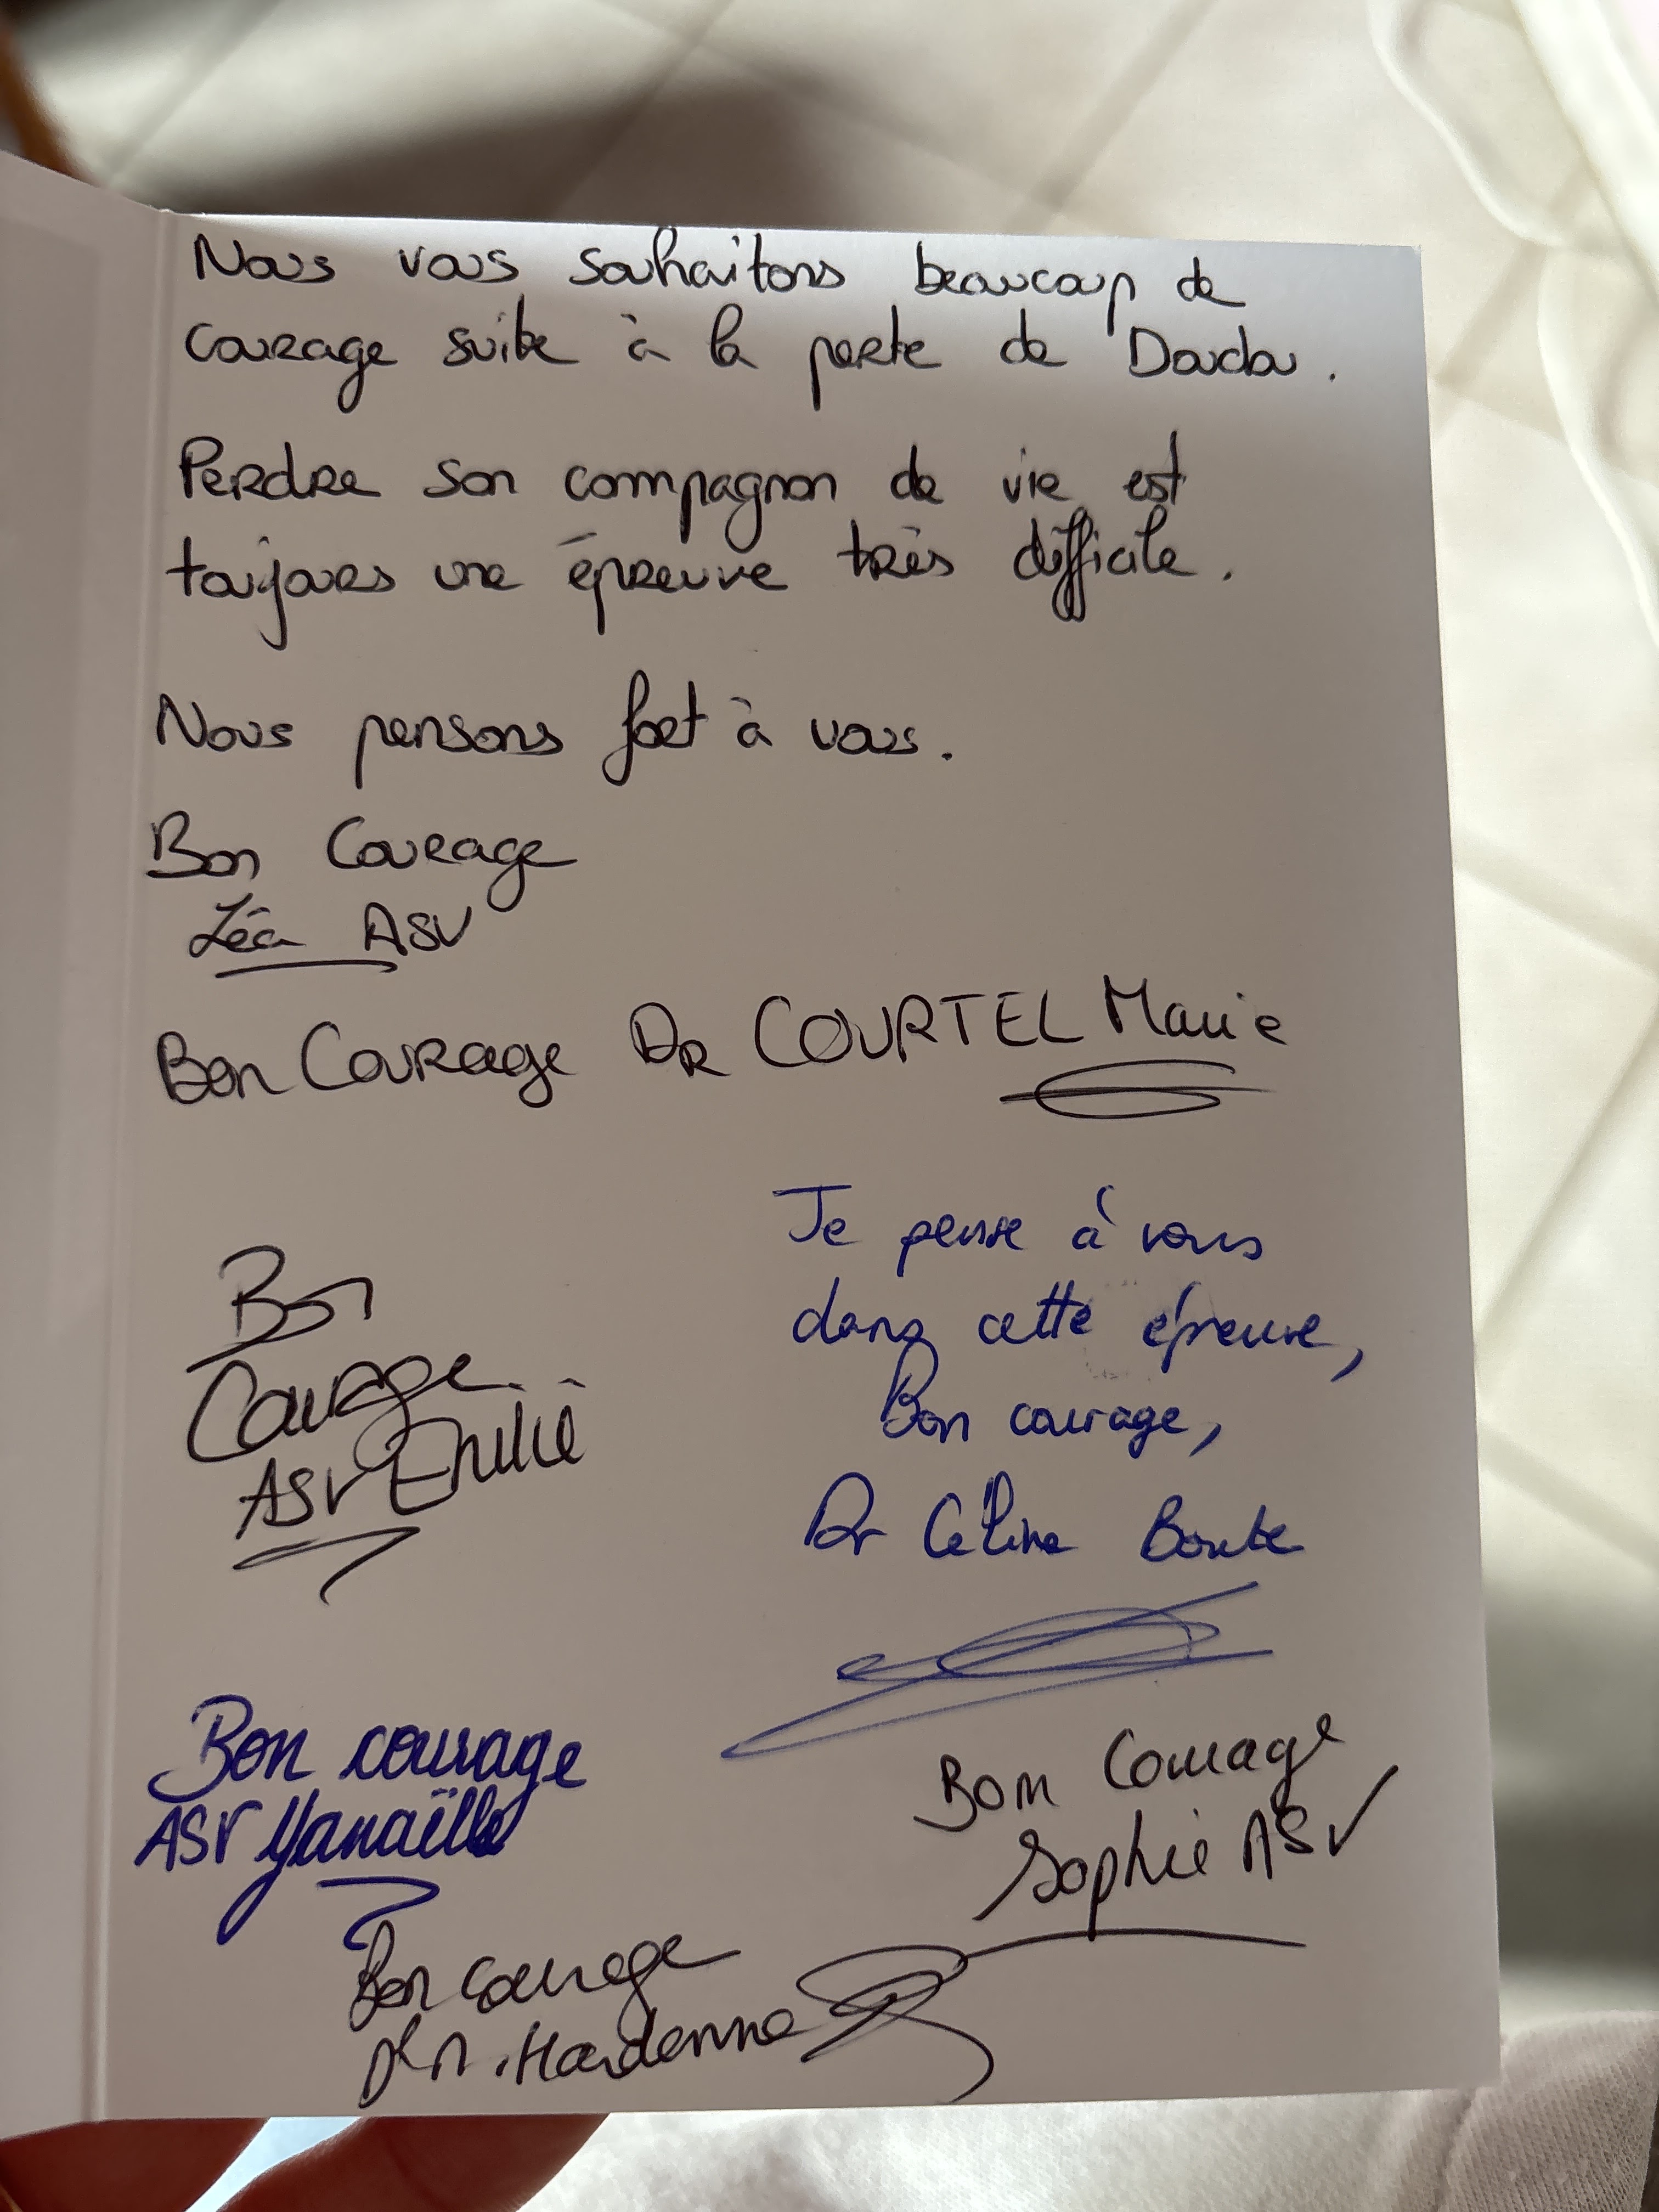 Nous vous souhaitons beaucoup de
courage suite à la perte de Dada.
Perdre son compagnon de vie est
toujours une épreuve très difficile.
Nous pensons fort à vous.
Bon Courage
Léa ASV
Bon Courage Dr COURTEL Marie
Bon
Courage
ASV Emilie
Je pense à vous
dans cette épreuve,
Bon courage,
Dr Céline
Bon courage
ASV Yanaëlle
Bon Courage
Sophie ASV
Bon courage